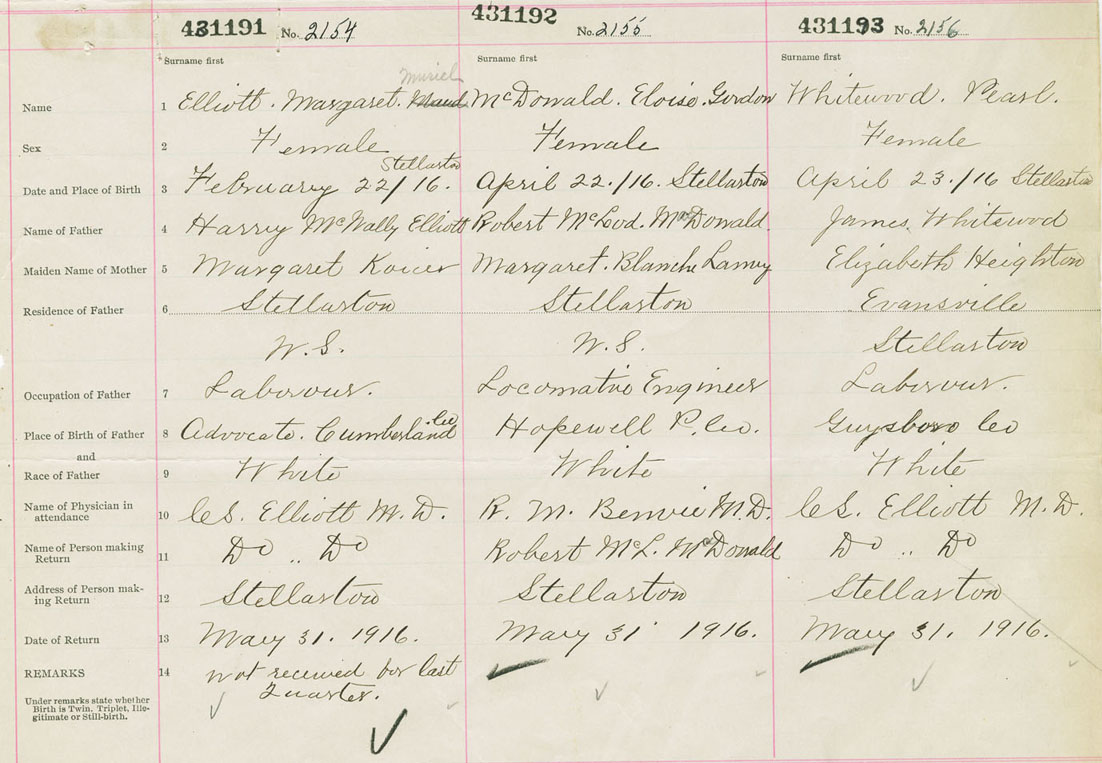 431191 No. 2154 431192 No. 2155 431193 No. 2156
Surname first Surname first Surname first
Muriel
Name 1 Elliott. Margaret. Maud McDonald. Eloise. Gordon Whitewood. Pearl.
Sex 2 Female Female Female
Stellarton
Date and Place of Birth 3 February 22/16. April 22./16. Stellarton April 23./16 Stellarton
Name of Father 4 Harry McNally Elliott Robert McLeod. McDonald. James. Whitewood
Maiden Name of Mother 5 Margaret Margaret. Blanche Elizabeth Heighton
Residence of Father 6 Stellarton Stellarton Evansville
N.S. N.S. Stellarton
Occupation of Father 7 Labourer. Locomative Engineer Labourer.
Co
Place of Birth of Father 8 Advocate. Cumberland Hopewell P. Co. Guysboro Co
and
Race of Father 9 White White White
Name of Physician in
attendance 10 C.S. Elliott M.D. R. M. Benvie M.D. C.S. Elliott M.D.
Name of Person making
Return 11 Do .. Do Robert McL. McDonald Do .. Do
Address of Person mak-
ing Return 12 Stellarton Stellarton Stellarton
Date of Return 13 May 31. 1916. May 31 1916. May 31. 1916.
REMARKS 14 not received for last
Quarter.
Under remarks state whether
Birth is Twin, Triplet, Ille-
gitimate or Still-birth.